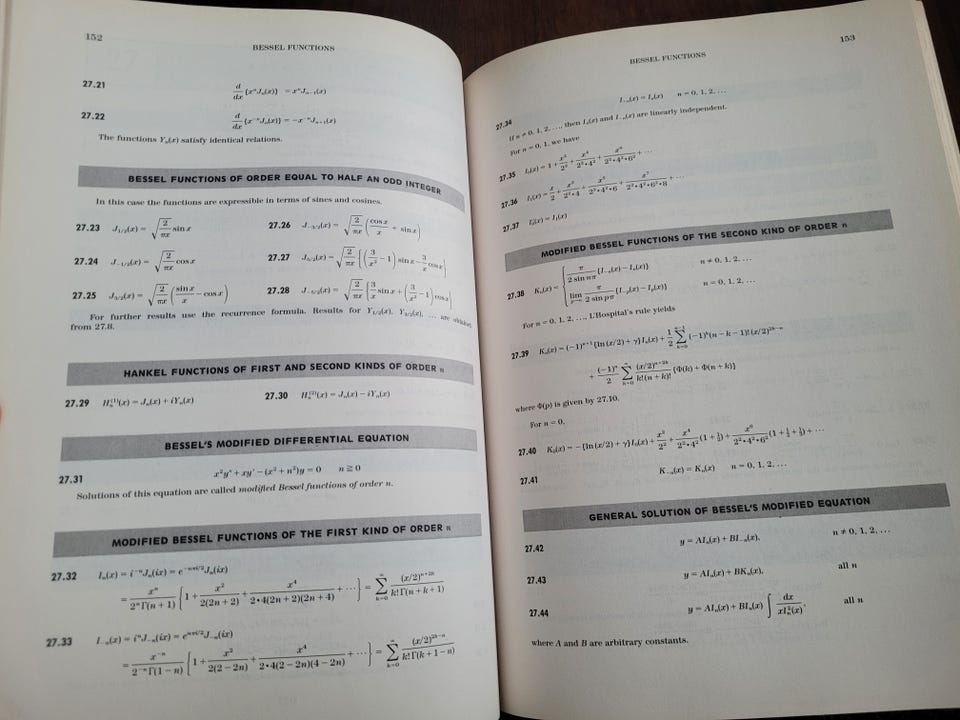 152
BESSEL FUNCTIONS
27.21 d/dx {xⁿJₙ(x)} = xⁿJₙ₋₁(x)
27.22 d/dx {x⁻ⁿJₙ(x)} = −x⁻ⁿJₙ₊₁(x)
The functions Yₙ(x) satisfy identical relations.
BESSEL FUNCTIONS OF ORDER EQUAL TO HALF AN ODD INTEGER
In this case the functions are expressible in terms of sines and cosines.
27.23 J₁/₂(x) = √(2/πx) sin x 27.26 J₋₃/₂(x) = √(2/πx) (cos x/x + sin x)
27.24 J₋₁/₂(x) = √(2/πx) cos x 27.27 J₅/₂(x) = √(2/πx) {(3/x² − 1) sin x − 3/x cos x}
27.25 J₃/₂(x) = √(2/πx) (sin x/x − cos x) 27.28 J₋₅/₂(x) = √(2/πx) {3/x sin x + (3/x² − 1) cos x}
For further results use the recurrence formula. Results for Y₁/₂(x), Y₃/₂(x), … are obtained
from 27.8.
HANKEL FUNCTIONS OF FIRST AND SECOND KINDS OF ORDER n
27.29 Hₙ⁽¹⁾(x) = Jₙ(x) + iYₙ(x) 27.30 Hₙ⁽²⁾(x) = Jₙ(x) − iYₙ(x)
BESSEL'S MODIFIED DIFFERENTIAL EQUATION
27.31 x²y″ + xy′ − (x² + n²)y = 0 n ≧ 0
Solutions of this equation are called modified Bessel functions of order n.
MODIFIED BESSEL FUNCTIONS OF THE FIRST KIND OF ORDER n
27.32 Iₙ(x) = i⁻ⁿJₙ(ix) = e^(−nπi/2)Jₙ(ix)
= xⁿ/(2ⁿΓ(n+1)) {1 + x²/(2(2n+2)) + x⁴/(2•4(2n+2)(2n+4)) + ⋯} = ∑_{k=0}^∞ (x/2)^(n+2k)/(k!Γ(n+k+1))
27.33 I₋ₙ(x) = iⁿJ₋ₙ(ix) = e^(nπi/2)J₋ₙ(ix)
= x⁻ⁿ/(2⁻ⁿΓ(1−n)) {1 + x²/(2(2−2n)) + x⁴/(2•4(2−2n)(4−2n)) + ⋯} = ∑_{k=0}^∞ (x/2)^(2k−n)/(k!Γ(k+1−n))
BESSEL FUNCTIONS
153
27.34 I₋ₙ(x) = Iₙ(x) n = 0, 1, 2, …
If n ≠ 0, 1, 2, …, then Iₙ(x) and I₋ₙ(x) are linearly independent.
For n = 0, 1, we have
27.35 I₀(x) = 1 + x²/2² + x⁴/(2²•4²) + x⁶/(2²•4²•6²) + ⋯
27.36 I₁(x) = x/2 + x³/(2²•4) + x⁵/(2²•4²•6) + x⁷/(2²•4²•6²•8) + ⋯
27.37 I₀′(x) = I₁(x)
MODIFIED BESSEL FUNCTIONS OF THE SECOND KIND OF ORDER n
27.38 Kₙ(x) = { π/(2 sin nπ) {I₋ₙ(x) − Iₙ(x)} n ≠ 0, 1, 2, …
lim_{p→n} π/(2 sin pπ) {I₋ₚ(x) − Iₚ(x)} n = 0, 1, 2, …
For n = 0, 1, 2, …, L'Hospital's rule yields
27.39 Kₙ(x) = (−1)ⁿ⁺¹{ln (x/2) + γ}Iₙ(x) + 1/2 ∑_{k=0}^{n−1} (−1)ᵏ(n−k−1)!(x/2)^(2k−n)
+ (−1)ⁿ/2 ∑_{k=0}^∞ (x/2)^(n+2k)/(k!(n+k)!) {Φ(k) + Φ(n+k)}
where Φ(p) is given by 27.10.
For n = 0,
27.40 K₀(x) = −{ln (x/2) + γ}I₀(x) + x²/2² + x⁴/(2²•4²) (1 + ½) + x⁶/(2²•4²•6²) (1 + ½ + ⅓) + ⋯
27.41 K₋ₙ(x) = Kₙ(x) n = 0, 1, 2, …
GENERAL SOLUTION OF BESSEL'S MODIFIED EQUATION
27.42 y = AIₙ(x) + BI₋ₙ(x), n ≠ 0, 1, 2, …
27.43 y = AIₙ(x) + BKₙ(x), all n
27.44 y = AIₙ(x) + BIₙ(x) ∫ dx/(xIₙ²(x)), all n
where A and B are arbitrary constants.